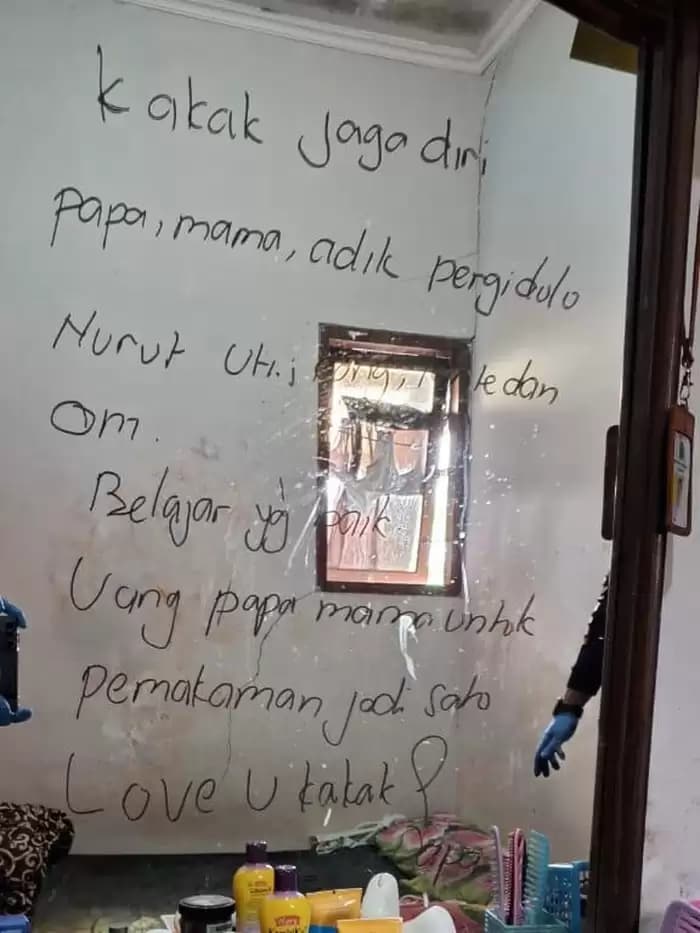 Kakak jaga diri
Papa, mama, adik pergi dulo
Nurut Uti, dan
Om.
Belajar yg baik
Uang papa mama untuk
pemakaman jadi sato
Love U kakak
Papa